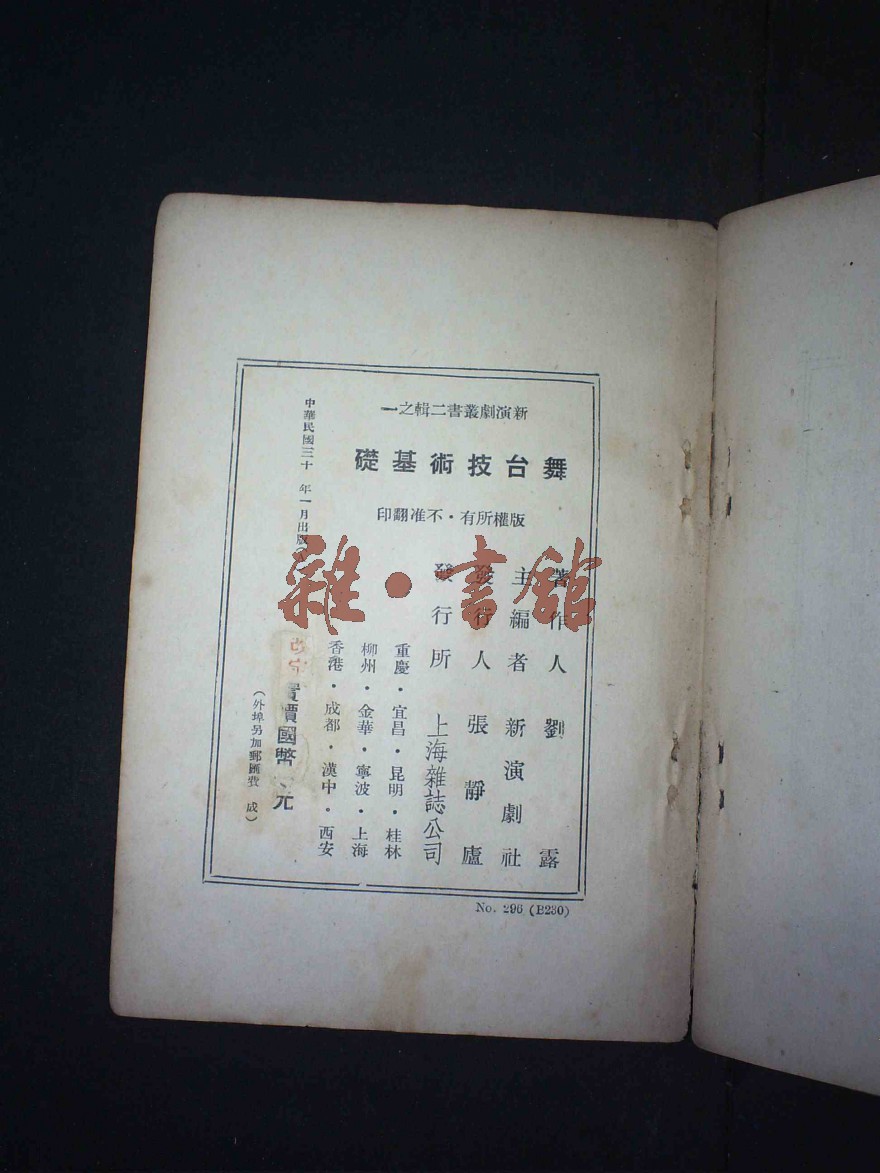 新演劇叢書二輯之一
舞台技術基礎
版權所有·不准翻印
著作人 劉露
主編者 新演劇社
發行人 張靜廬
發行所 上海雜誌公司
重慶·宜昌·昆明·桂林
柳州·金華·寧波·上海
香港·成都·漢中·西安
中華民國三十年一月出版
實價國幣 元
（外埠另加郵匯費 成）
改定
No. 296 (B230)
雜·書館